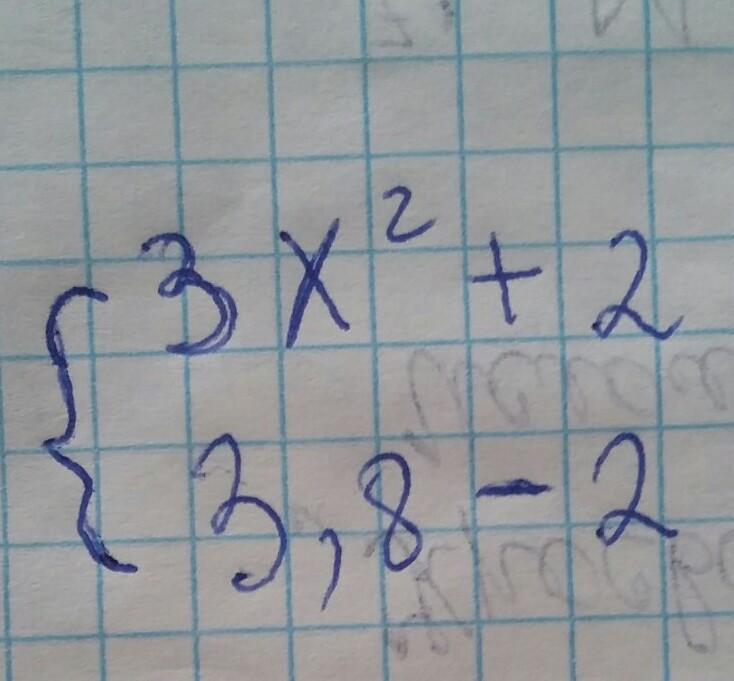 { 3x² + 2
3,8 - 2